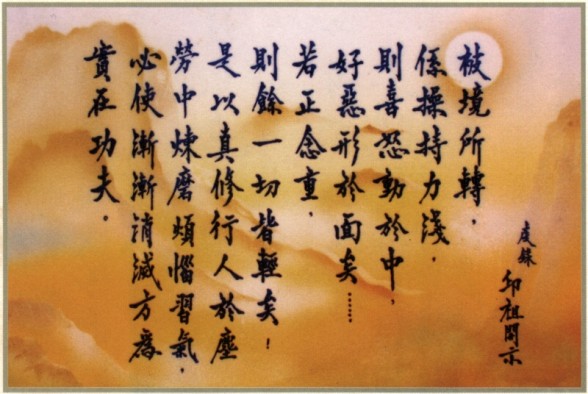 虔錄
邱祖開示
被境所轉，
係操持力淺，
則喜怒動於中，
好惡形於面矣……
若正念重，
則餘一切皆輕矣！
是以真修行人於塵
勞中煉磨煩惱習氣，
必使漸漸消滅方爲
實在功夫。